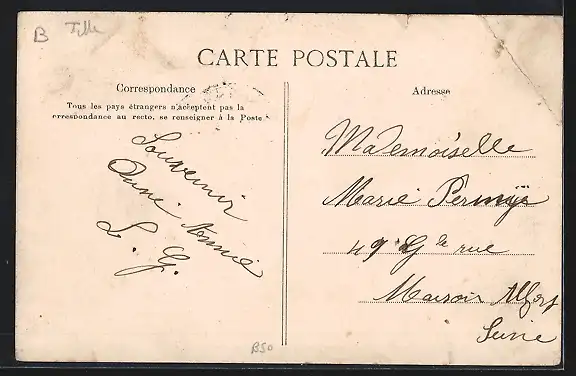 B Tille
CARTE POSTALE
Correspondance
Tous les pays étrangers n'acceptent pas la
correspondance au recto, se renseigner à la Poste.
Souvenir
L. G.
Adresse
Mademoiselle
Marie
49 Gde rue
Maison Alfort
Seine
B50